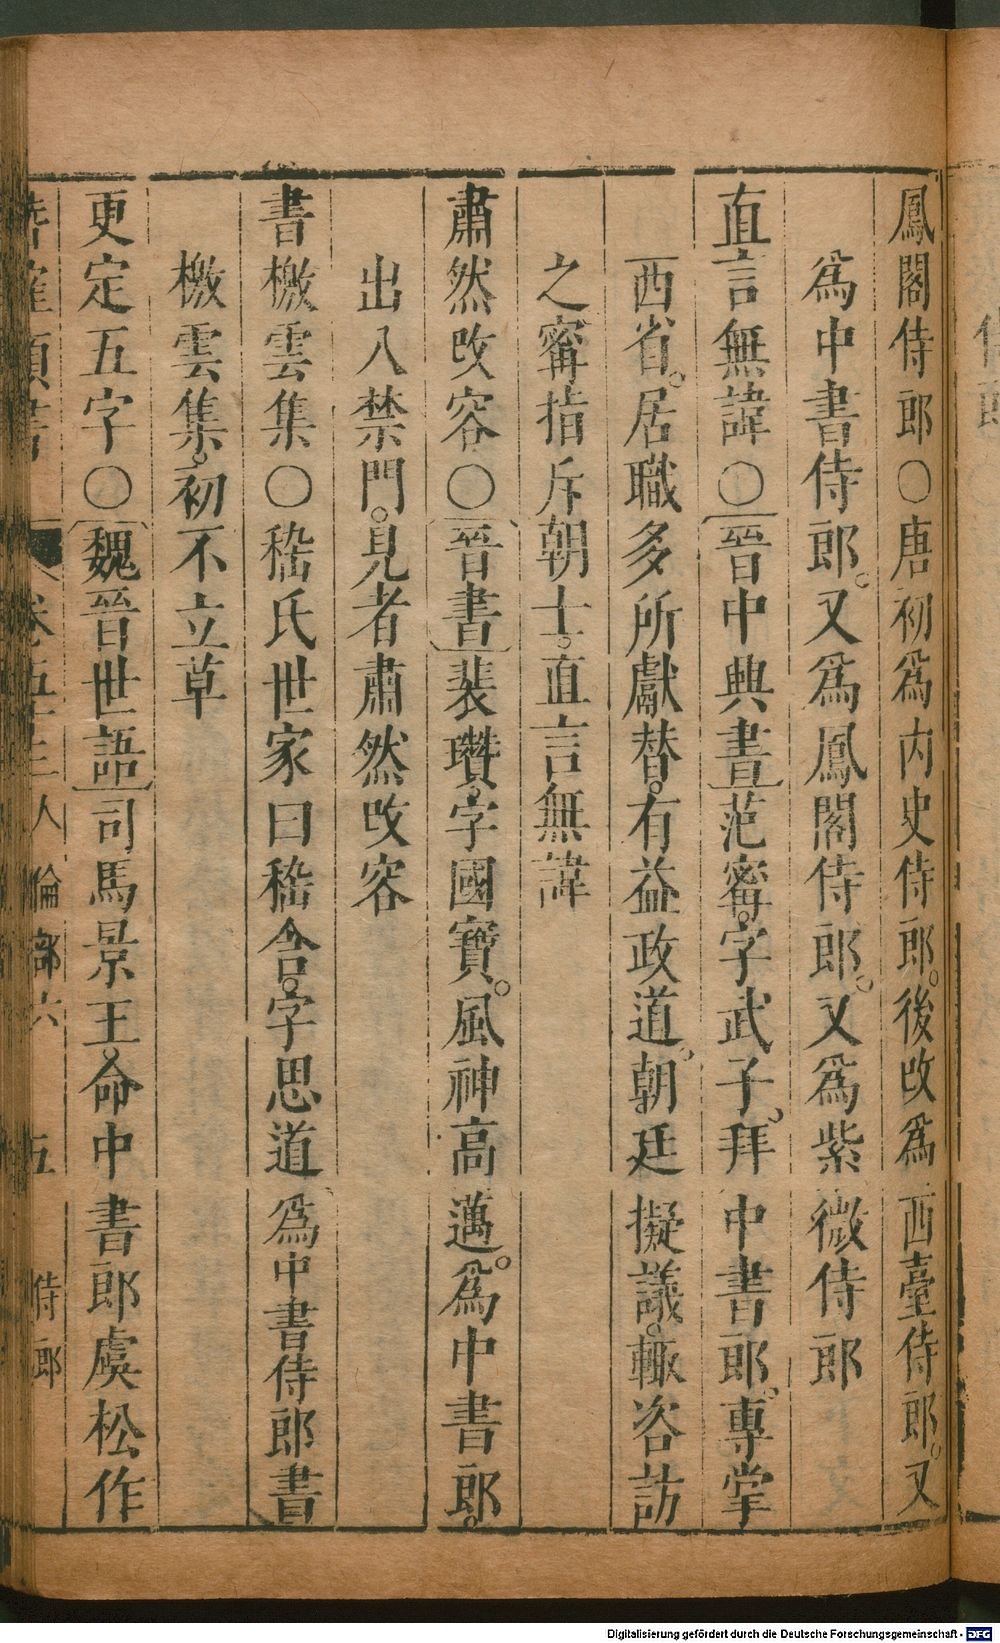 鳳閣侍郎○唐初爲內史侍郎。後改爲西臺侍郎。又
爲中書侍郎。又爲鳳閣侍郎。又爲紫微侍郎
直言無諱○晉中興書范甯。字武子。拜中書郎。專掌
西省。居職多所獻替。有益政道。朝廷擬議。輙咨訪
之甯指斥朝士。直言無諱
肅然改容○晉書裴瓚。字國寶。風神高邁。爲中書郎。
出入禁門。見者肅然改容
書檄雲集○嵇氏世家曰嵇含。字思道爲中書侍郎書
檄雲集。初不立草
更定五字○魏晉世語司馬景王。命中書郎虞松作
卷五十三人倫部六 五 侍郎
Digitalisierung gefördert durch die Deutsche Forschungsgemeinschaft - DFG